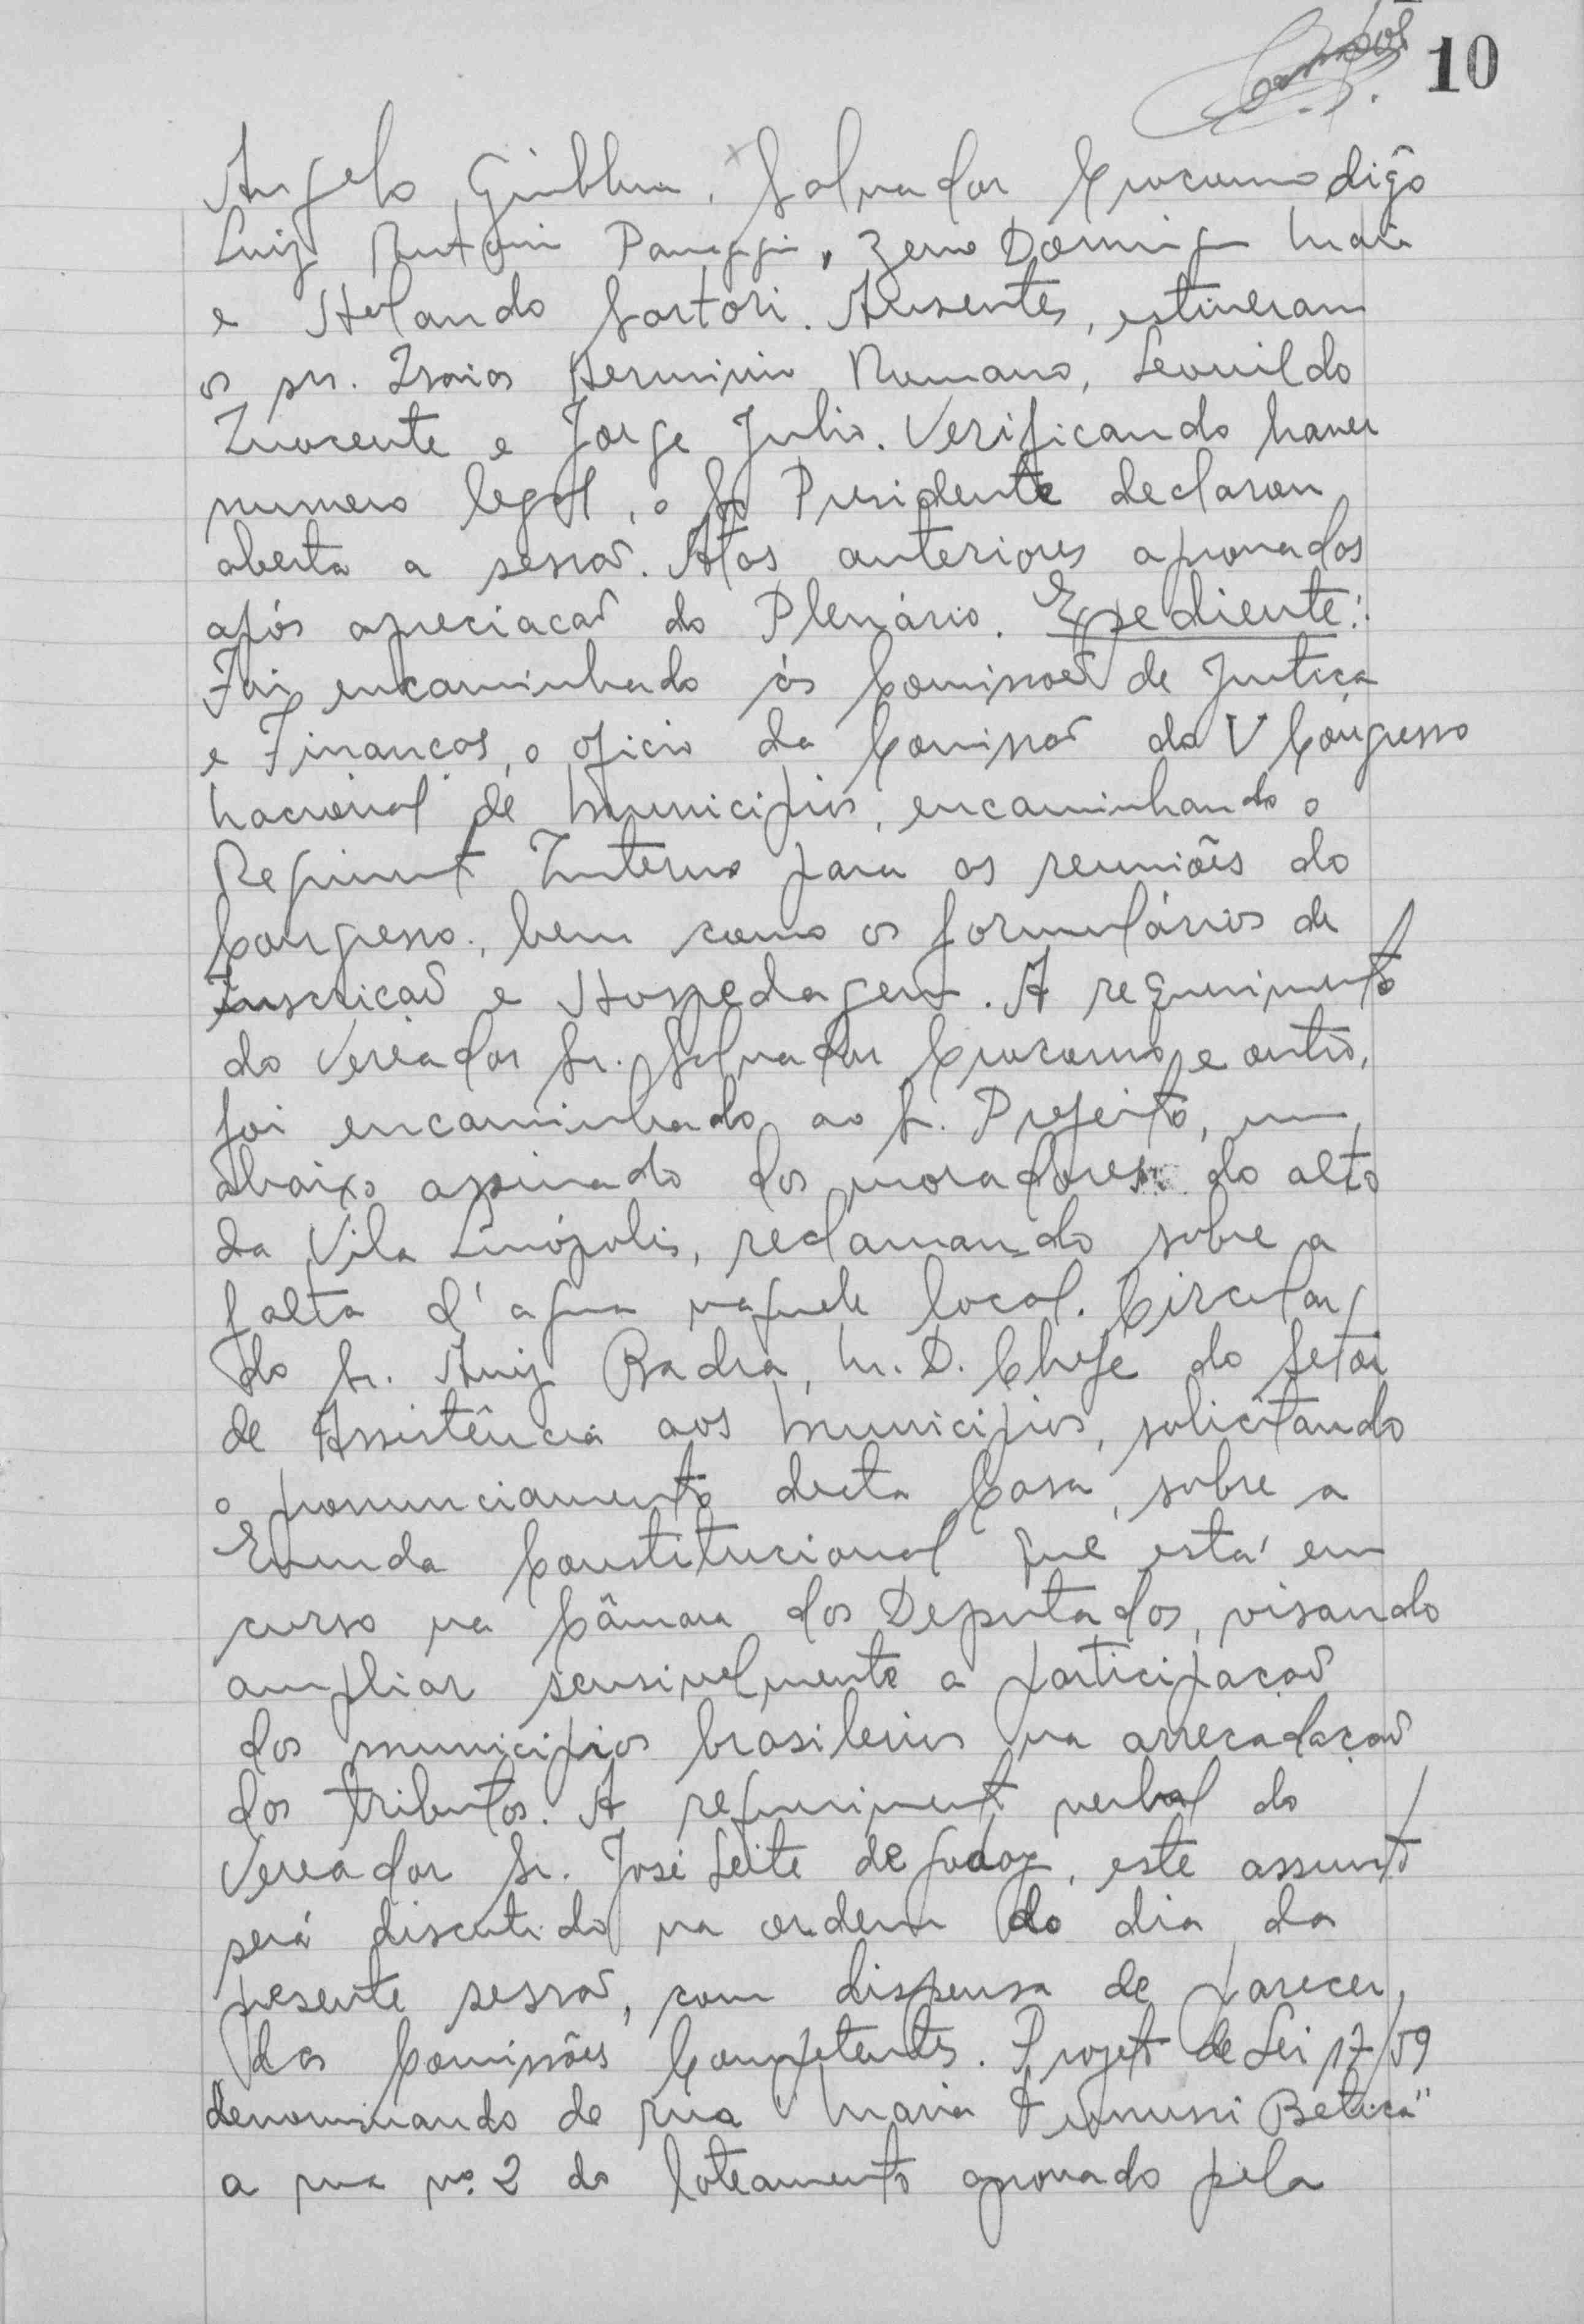 10
Angelo Giubbina, Salvador Crocomo digo
Luiz Antonio Panaggio, Zeno Domingos Maia
e Holando Sartori. Ausentes, estiveram
os srs. Izaias Herminio Romano, Leonildo
Inocente e Jorge Julio. Verificando haver
numero legal, o Sr Presidente declarou
aberta a sessaõ. Atas anteriores aprovadas
após apreciacaõ do Plenário. Expediente:
Foi encaminhado ás Comissoẽs de Justiça
e Finanças, o oficio da Comissaõ do V Congresso
Nacional de Municipios, encaminhando o
Regimento Interno para as reuniões do
Congresso, bem como os formulários de
Inscriçaõ e Hospedagem. A requerimento
do Vereador Sr. Salvador Crocomo e outro,
foi encaminhado ao Sr. Prefeito, um
abaixo assinado dos moradores do alto
da Vila Linópolis, reclamando sobre a
falta d'agua naquele local. Circular
do Sr. Aniz Badra, M. D. Chefe do Setor
de Assistência aos Municipios, solicitando
o pronunciamento desta Casa, sobre a
Emenda Constitucional que está em
curso na Câmara dos Deputados, visando
ampliar sensivelmente a participaçaõ
dos municipios brasileiros na arrecadaçaõ
dos tributos. A requerimento verbal do
Vereador Sr. José Leite de Godoy, este assunto
será discutido na ordem do dia da
presente sessaõ, com dispensa de parecer
das Comissões Competentes. Projeto de Lei 17/59
denominando de rua "Maria Betica"
a rua nº. 2 do loteamento aprovado pela